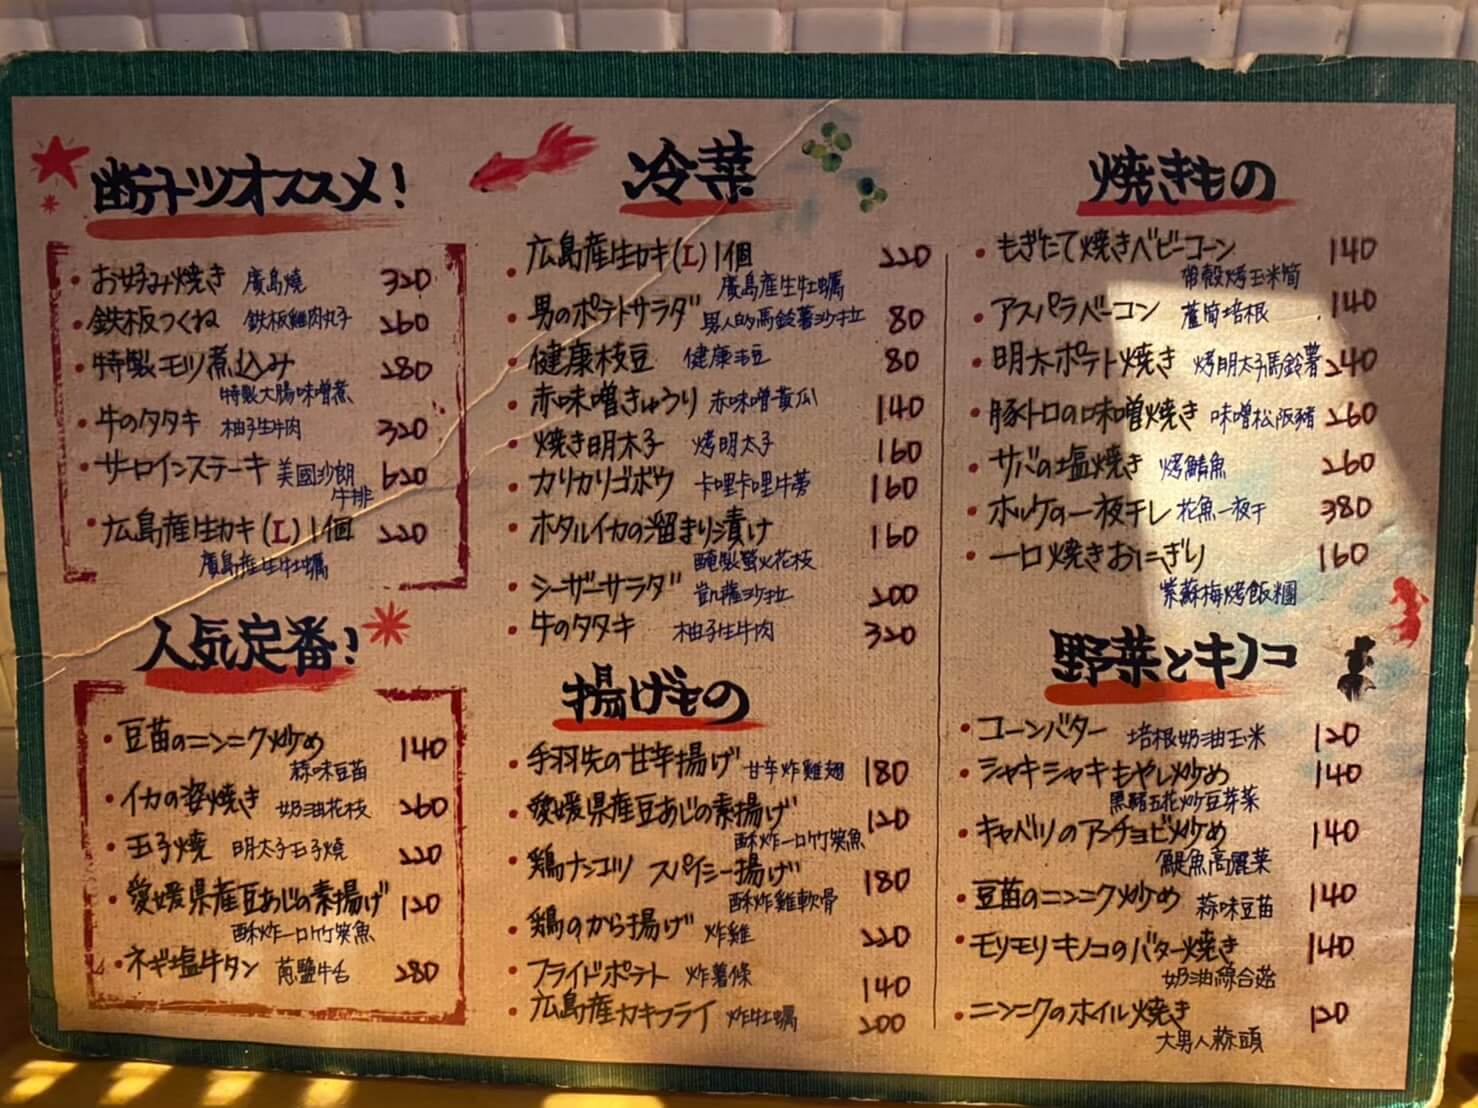 断トツオススメ!
お好み焼き 廣島燒 320
鉄板つくね 鉄板雞肉丸子 260
特製モツ煮込み 280
特製大腸味噌煮
牛のタタキ 柚子生牛肉 320
サーロインステーキ 美國沙朗 620
牛排
広島産生カキ(L)1個 220
廣島産生牡蠣
人気定番!
豆苗のニンニク炒め 140
蒜味豆苗
イカの姿焼き 奶油花枝 260
玉子焼 明太子玉子燒 220
愛媛県産豆あじの素揚げ 120
酥炸一口竹筴魚
ネギ塩牛タン 蔥鹽牛舌 280
冷菜
広島産生カキ(L)1個 220
廣島産生牡蠣
男のポテトサラダ 男人的馬鈴薯沙拉 80
健康枝豆 健康毛豆 80
赤味噌きゅうり 赤味噌黃瓜 140
焼き明太子 烤明太子 160
カリカリゴボウ 卡哩卡哩牛蒡 160
ホタルイカの溜まり漬け 160
醃製螢火花枝
シーザーサラダ 凱薩沙拉 200
牛のタタキ 柚子生牛肉 320
揚げもの
手羽先の甘辛揚げ 甘辛炸雞翅 180
愛媛県産豆あじの素揚げ 120
酥炸一口竹筴魚
鶏ナンコツ スパイシー揚げ 180
酥炸雞軟骨
鶏のから揚げ 炸雞 220
フライドポテト 炸薯條 140
広島産カキフライ 炸牡蠣 200
焼きもの
もぎたて焼きベビーコーン 140
帶殼烤玉米筍
アスパラベーコン 蘆筍培根 140
明太ポテト焼き 烤明太子馬鈴薯 240
豚トロの味噌焼き 味噌松阪豬 260
サバの塩焼き 烤鯖魚 260
ホッケの一夜干し 花魚一夜干 380
一口焼きおにぎり 160
紫蘇梅烤飯糰
野菜とキノコ
コーンバター 培根奶油玉米 120
シャキシャキもやし炒め 140
黑豬五花炒豆芽菜
キャベツのアンチョビ炒め 140
鯷魚高麗菜
豆苗のニンニク炒め 蒜味豆苗 140
モリモリキノコのバター焼き 140
奶油綜合菇
ニンニクのホイル焼き 120
大男人蒜頭